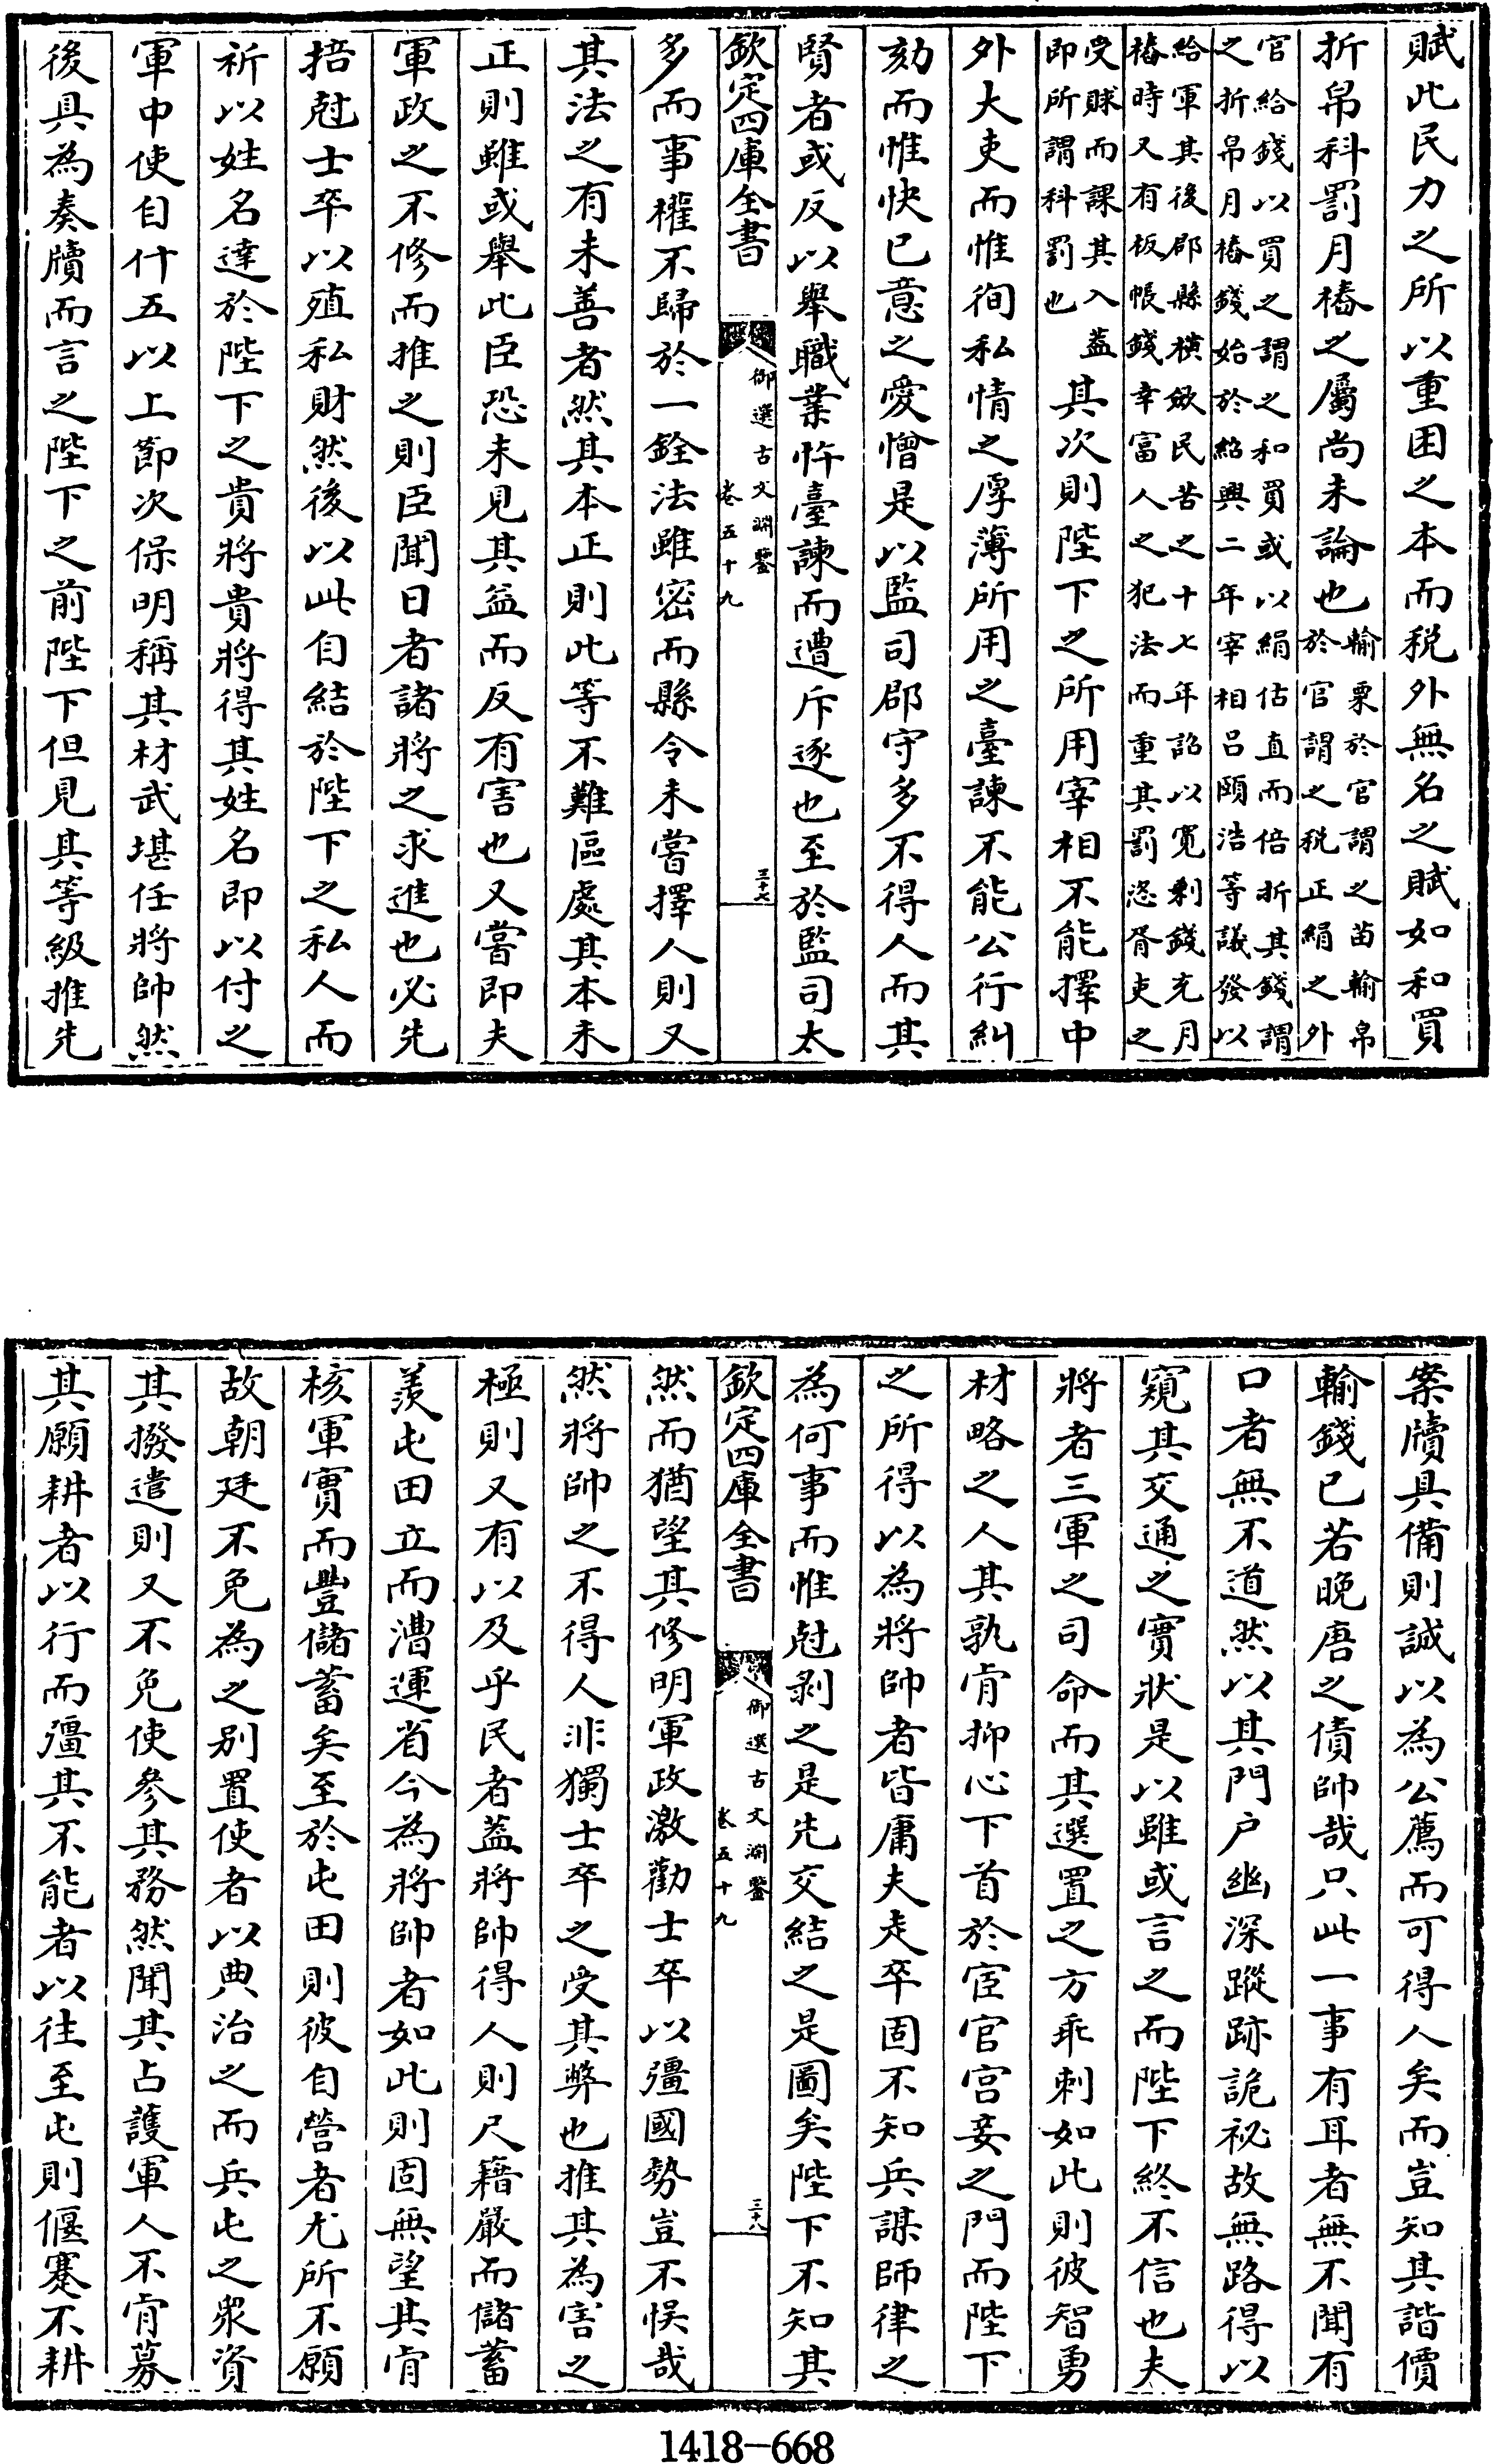 賦此民力之所以重困之本而税外無名之賦如和買
折帛科罰月樁之屬尚未論也輸粟於官謂之苗輸帛
於官謂之税正絹之外
官給錢以買之謂之和買或以絹估直而倍折其錢謂
之折帛月樁錢始於紹興二年宰相呂頤浩等議發以
給軍其後郡縣横斂民苦之十七年詔以寛剰錢充月
樁時又有板帳錢幸富人之犯法而重其罰恣胥吏之
受賕而課其入蓋
即所謂科罰也
其次則陛下之所用宰相不能擇中
外大吏而惟徇私情之厚薄所用之臺諫不能公行糾
劾而惟快已意之愛憎是以監司郡守多不得人而其
賢者或反以舉職業忤臺諫而遭斥逐也至於監司太
欽定四庫全書
御選古文淵鑒
卷五十九
三十七
多而事權不歸於一銓法雖密而縣令未嘗擇人則又
其法之有未善者然其本正則此等不難區處其本未
正則雖或舉此臣恐未見其益而反有害也又嘗即夫
軍政之不修而推之則臣聞日者諸將之求進也必先
掊尅士卒以殖私財然後以此自結於陛下之私人而
祈以姓名達於陛下之貴將貴將得其姓名即以付之
軍中使自什五以上節次保明稱其材武堪任將帥然
後具為奏牘而言之陛下之前陛下但見其等級推先
案牘具備則誠以為公薦而可得人矣而豈知其諧價
輸錢已若晚唐之債帥哉只此一事有耳者無不聞有
口者無不道然以其門户幽深蹤跡詭祕故無路得以
窺其交通之實狀是以雖或言之而陛下終不信也夫
將者三軍之司命而其選置之方乖剌如此則彼智勇
材略之人其孰肯抑心下首於宦官宫妾之門而陛下
之所得以為將帥者皆庸夫走卒固不知兵謀師律之
為何事而惟尅剥之是先交結之是圖矣陛下不知其
欽定四庫全書
御選古文淵鑒
卷五十九
三十八
然而猶望其修明軍政激勸士卒以彊國勢豈不悮哉
然將帥之不得人非獨士卒之受其弊也推其為害之
極則又有以及乎民者蓋將帥得人則尺籍嚴而儲蓄
羡屯田立而漕運省今為將帥者如此則固無望其肯
核軍實而豐儲蓄矣至於屯田則彼自營者尤所不願
故朝廷不免為之别置使者以典治之而兵屯之衆資
其撥遣則又不免使參其務然聞其占護軍人不肯募
其願耕者以行而彊其不能者以往至屯則偃蹇不耕
1418-668